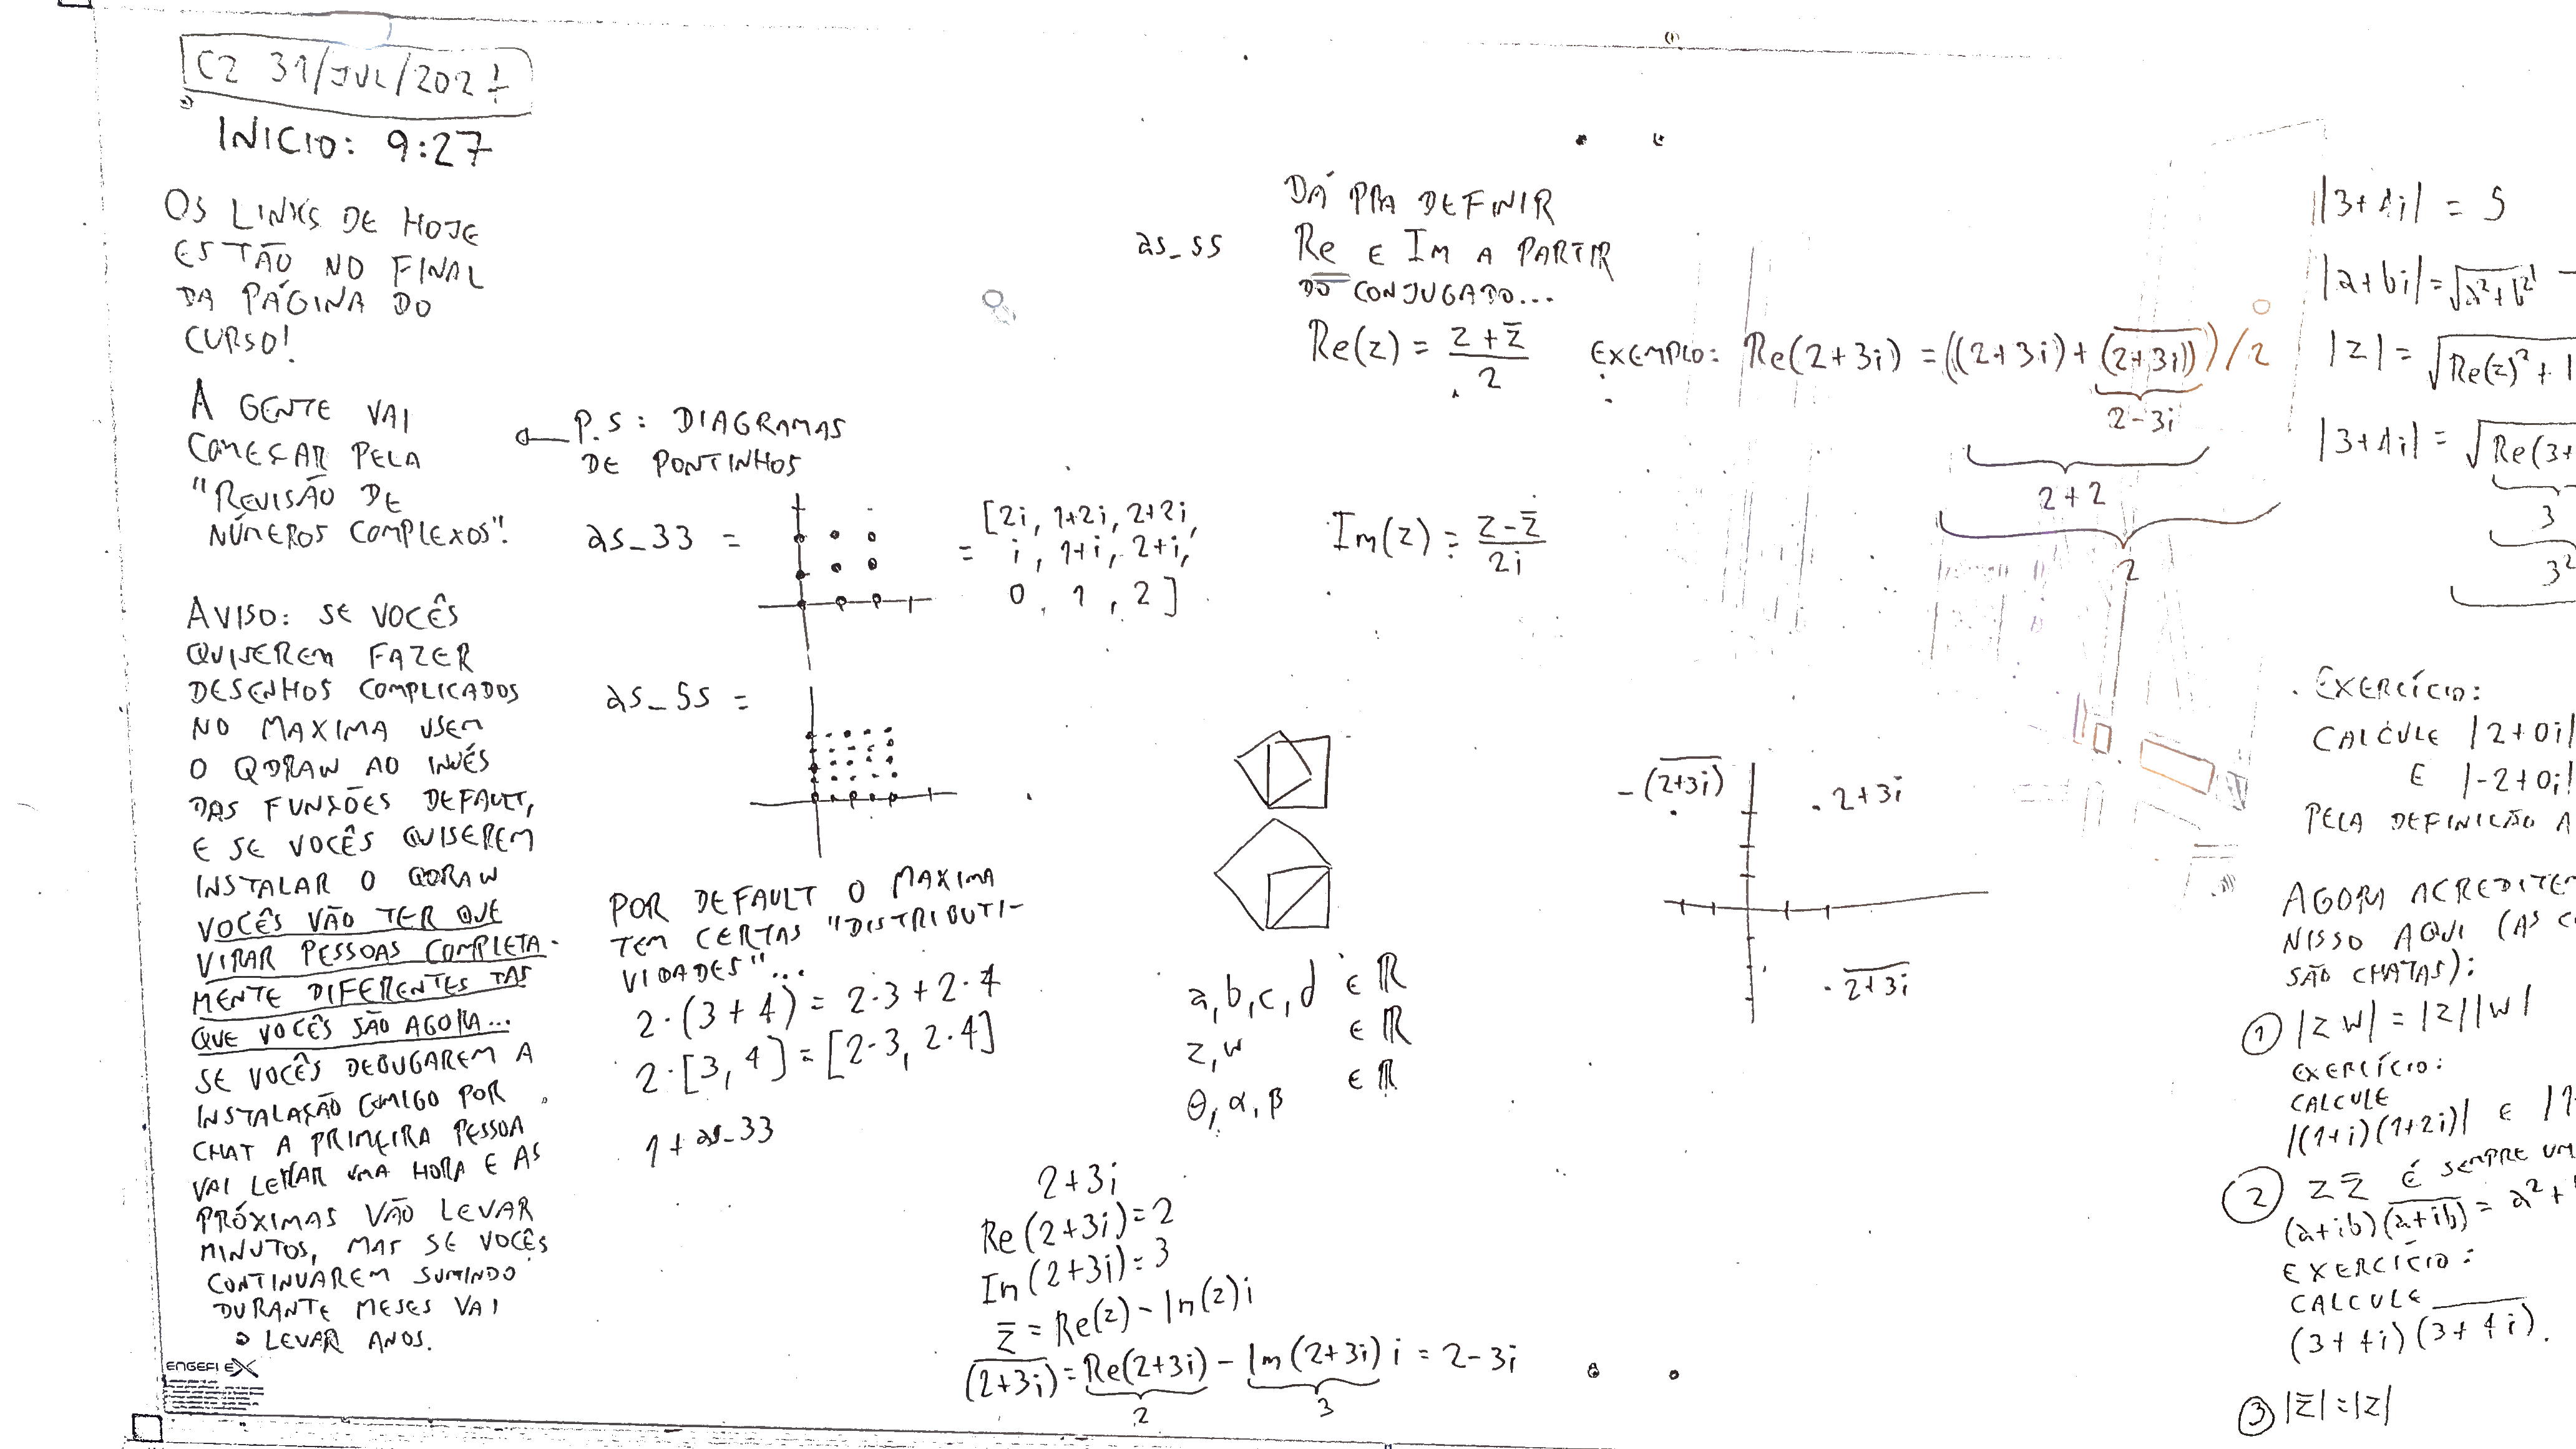 C2 31/JUL/2024
INICIO: 9:27
OS LINKS DE HOJE
ESTÃO NO FINAL
DA PÁGINA DO
CURSO!
A GENTE VAI
COMEÇAR PELA
"REVISÃO DE
NÚMEROS COMPLEXOS".
P.S: DIAGRAMAS
DE PONTINHOS
AVISO: SE VOCÊS
QUISEREM FAZER
DESENHOS COMPLICADOS
NO MAXIMA USEM
O QDRAW AO INVÉS
DAS FUNÇÕES DEFAULT,
E SE VOCÊS QUISEREM
INSTALAR O QDRAW
VOCÊS VÃO TER QUE
VIRAR PESSOAS COMPLETA-
MENTE DIFERENTES DAS
QUE VOCÊS SÃO AGORA...
SE VOCÊS DEBUGAREM A
INSTALAÇÃO COMIGO POR
CHAT A PRIMEIRA PESSOA
VAI LEVAR UMA HORA E AS
PRÓXIMAS VÃO LEVAR
MINUTOS, MAS SE VOCÊS
CONTINUAREM SUMINDO
DURANTE MESES VAI
LEVAR ANOS.
ENGEFLEX
as_33 = = [2i, 1+2i, 2+2i,
i, 1+i, 2+i,
0, 1, 2]
as_55 =
POR DEFAULT O MAXIMA
TEM CERTAS "DISTRIBUTI-
VIDADES"...
2·(3+4) = 2·3+2·4
2·[3,4] = [2·3, 2·4]
1+as_33
as_55
DÁ PRA DEFINIR
Re E Im A PARTIR
DO CONJUGADO...
Re(z) = z+z̄ / 2
EXEMPLO: Re(2+3i) = ((2+3i)+(\overline{2+3i}))/2
2-3i
2+2
2
Im(z) = z-z̄ / 2i
a,b,c,d ∈ ℝ
z,w ∈ ℝ
θ,α,β ∈ ℝ
-(\overline{2+3i})
2+3i
\overline{2+3i}
2+3i
Re(2+3i)=2
Im(2+3i)=3
z̄ = Re(z)-Im(z)i
(\overline{2+3i}) = Re(2+3i) - Im(2+3i) i = 2-3i
2 3
|3+4i| = 5
|a+bi| = √a²+b²
|z| = √Re(z)²+
|3+4i| = √Re(3+
3
3²
EXERCÍCIO:
CALCULE |2+0i|
E |-2+0i|
PELA DEFINIÇÃO A
AGORA ACREDITEM
NISSO AQUI (AS C
SÃO CHATAS):
① |zw| = |z||w|
EXERCÍCIO:
CALCULE
|(1+i)(1+2i)| E |1
② z z̄ É SEMPRE UM
(a+ib)(\overline{a+ib}) = a²+
EXERCÍCIO:
CALCULE
(3+4i)(\overline{3+4i}).
③ |z̄|=|z|